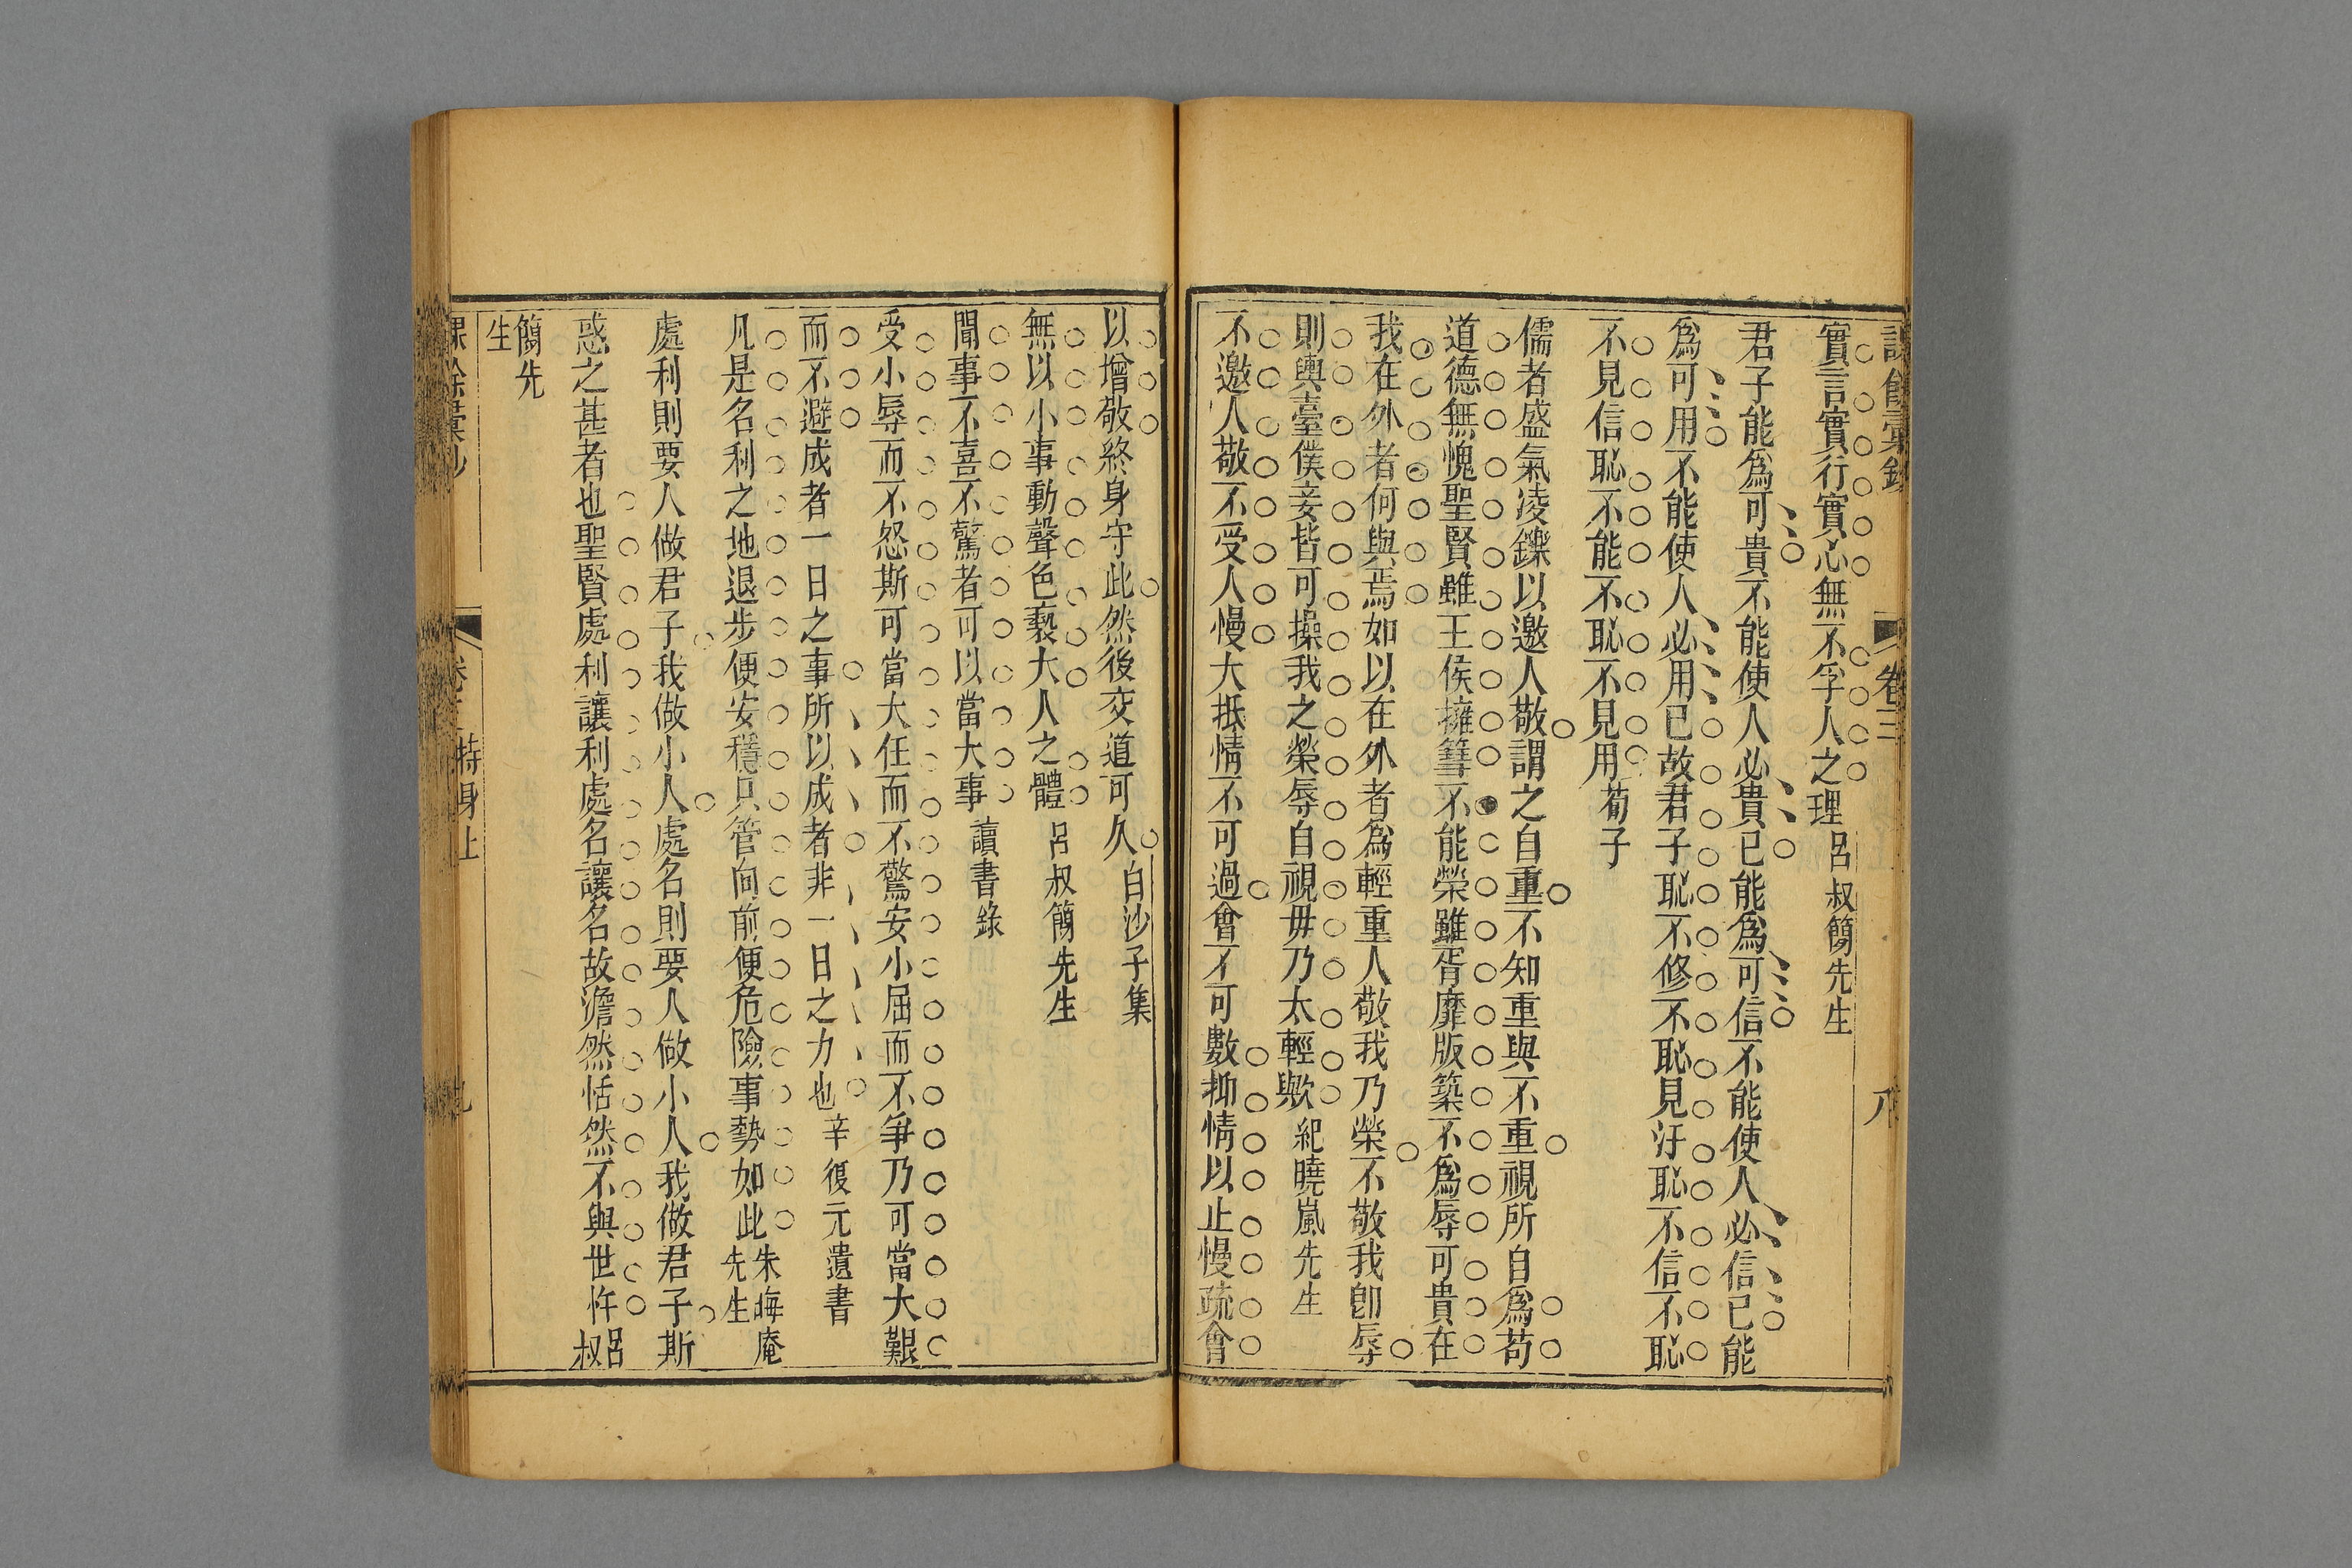 課餘彙鈔 卷三 八
實言實行實心無不孚人之理 呂叔簡先生
君子能爲可貴不能使人必貴己能爲可信不能使人必信己能
爲可用不能使人必用己故君子恥不修不恥見汙恥不信不恥
不見信恥不能不恥不見用 荀子
儒者盛氣凌鑠以邀人敬謂之自重不知重與不重視所自爲苟
道德無愧聖賢雖王侯擁篲不能榮雖胥靡版築不爲辱可貴在
我在外者何與焉如以在外者爲輕重人敬我乃榮不敬我卽辱
則輿臺僕妾皆可操我之榮辱自視毋乃太輕歟 紀曉嵐先生
不邀人敬不受人慢大抵情不可過會不可數抑情以止慢疏會
以增敬終身守此然後交道可久 白沙子集
無以小事動聲色褻大人之體 呂叔簡先生
聞事不喜不驚者可以當大事 讀書錄
受小辱而不怒斯可當大任而不驚安小屈而不爭乃可當大艱
而不避成者一日之事所以成者非一日之力也 辛復元遺書
凡是名利之地退步便安穩只管向前便危險事勢如此 朱晦庵先生
處利則要人做君子我做小人處名則要人做小人我做君子斯
惑之甚者也聖賢處利讓利處名讓名故澹然恬然不與世忤 呂叔
簡先生
課餘彙鈔 卷三 持身上 九